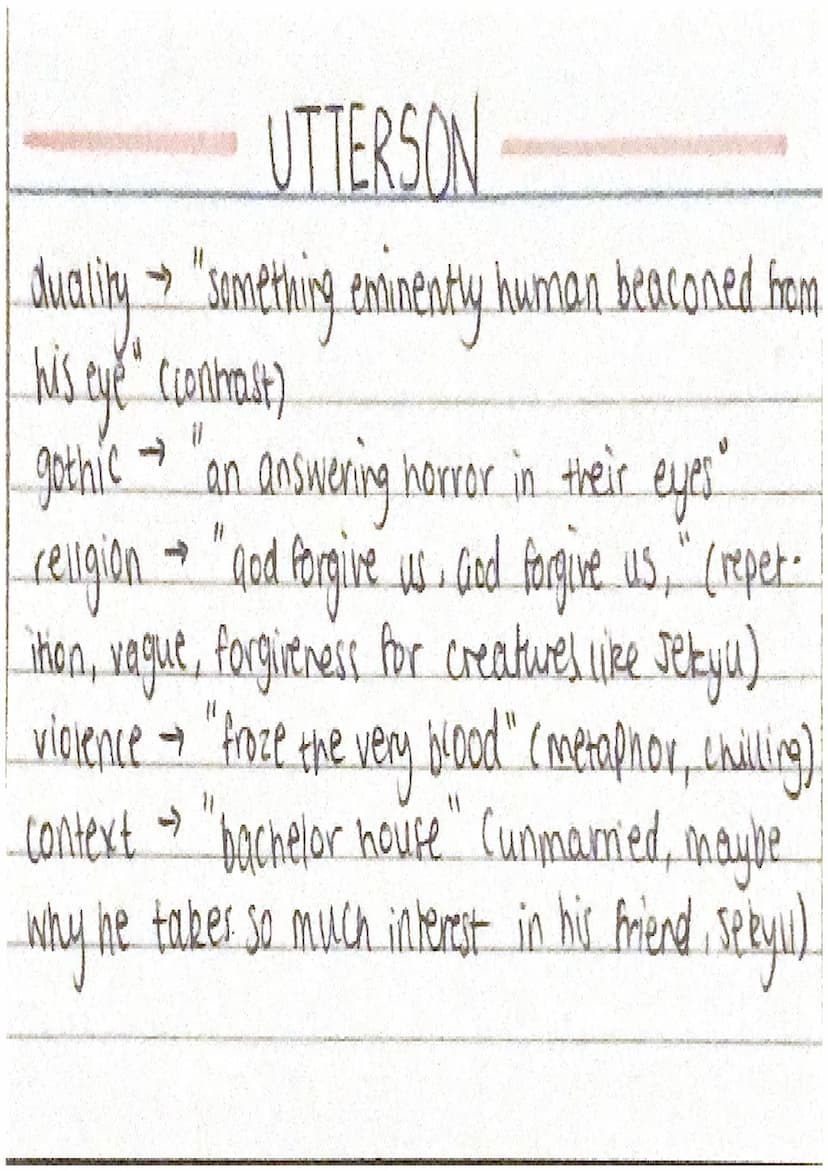 UTTERSON
duality → "something eminently human beaconed from
his eye" (contrast)
gothic → "an answering horror in their eyes"
religion → "God forgive us, God forgive us," (repet-
ition, vague, forgiveness for creatures like Jekyll)
violence → "froze the very blood" (metaphor, chilling)
context → "bachelor house" (unmarried, maybe
why he takes so much interest in his friend, Jekyll)